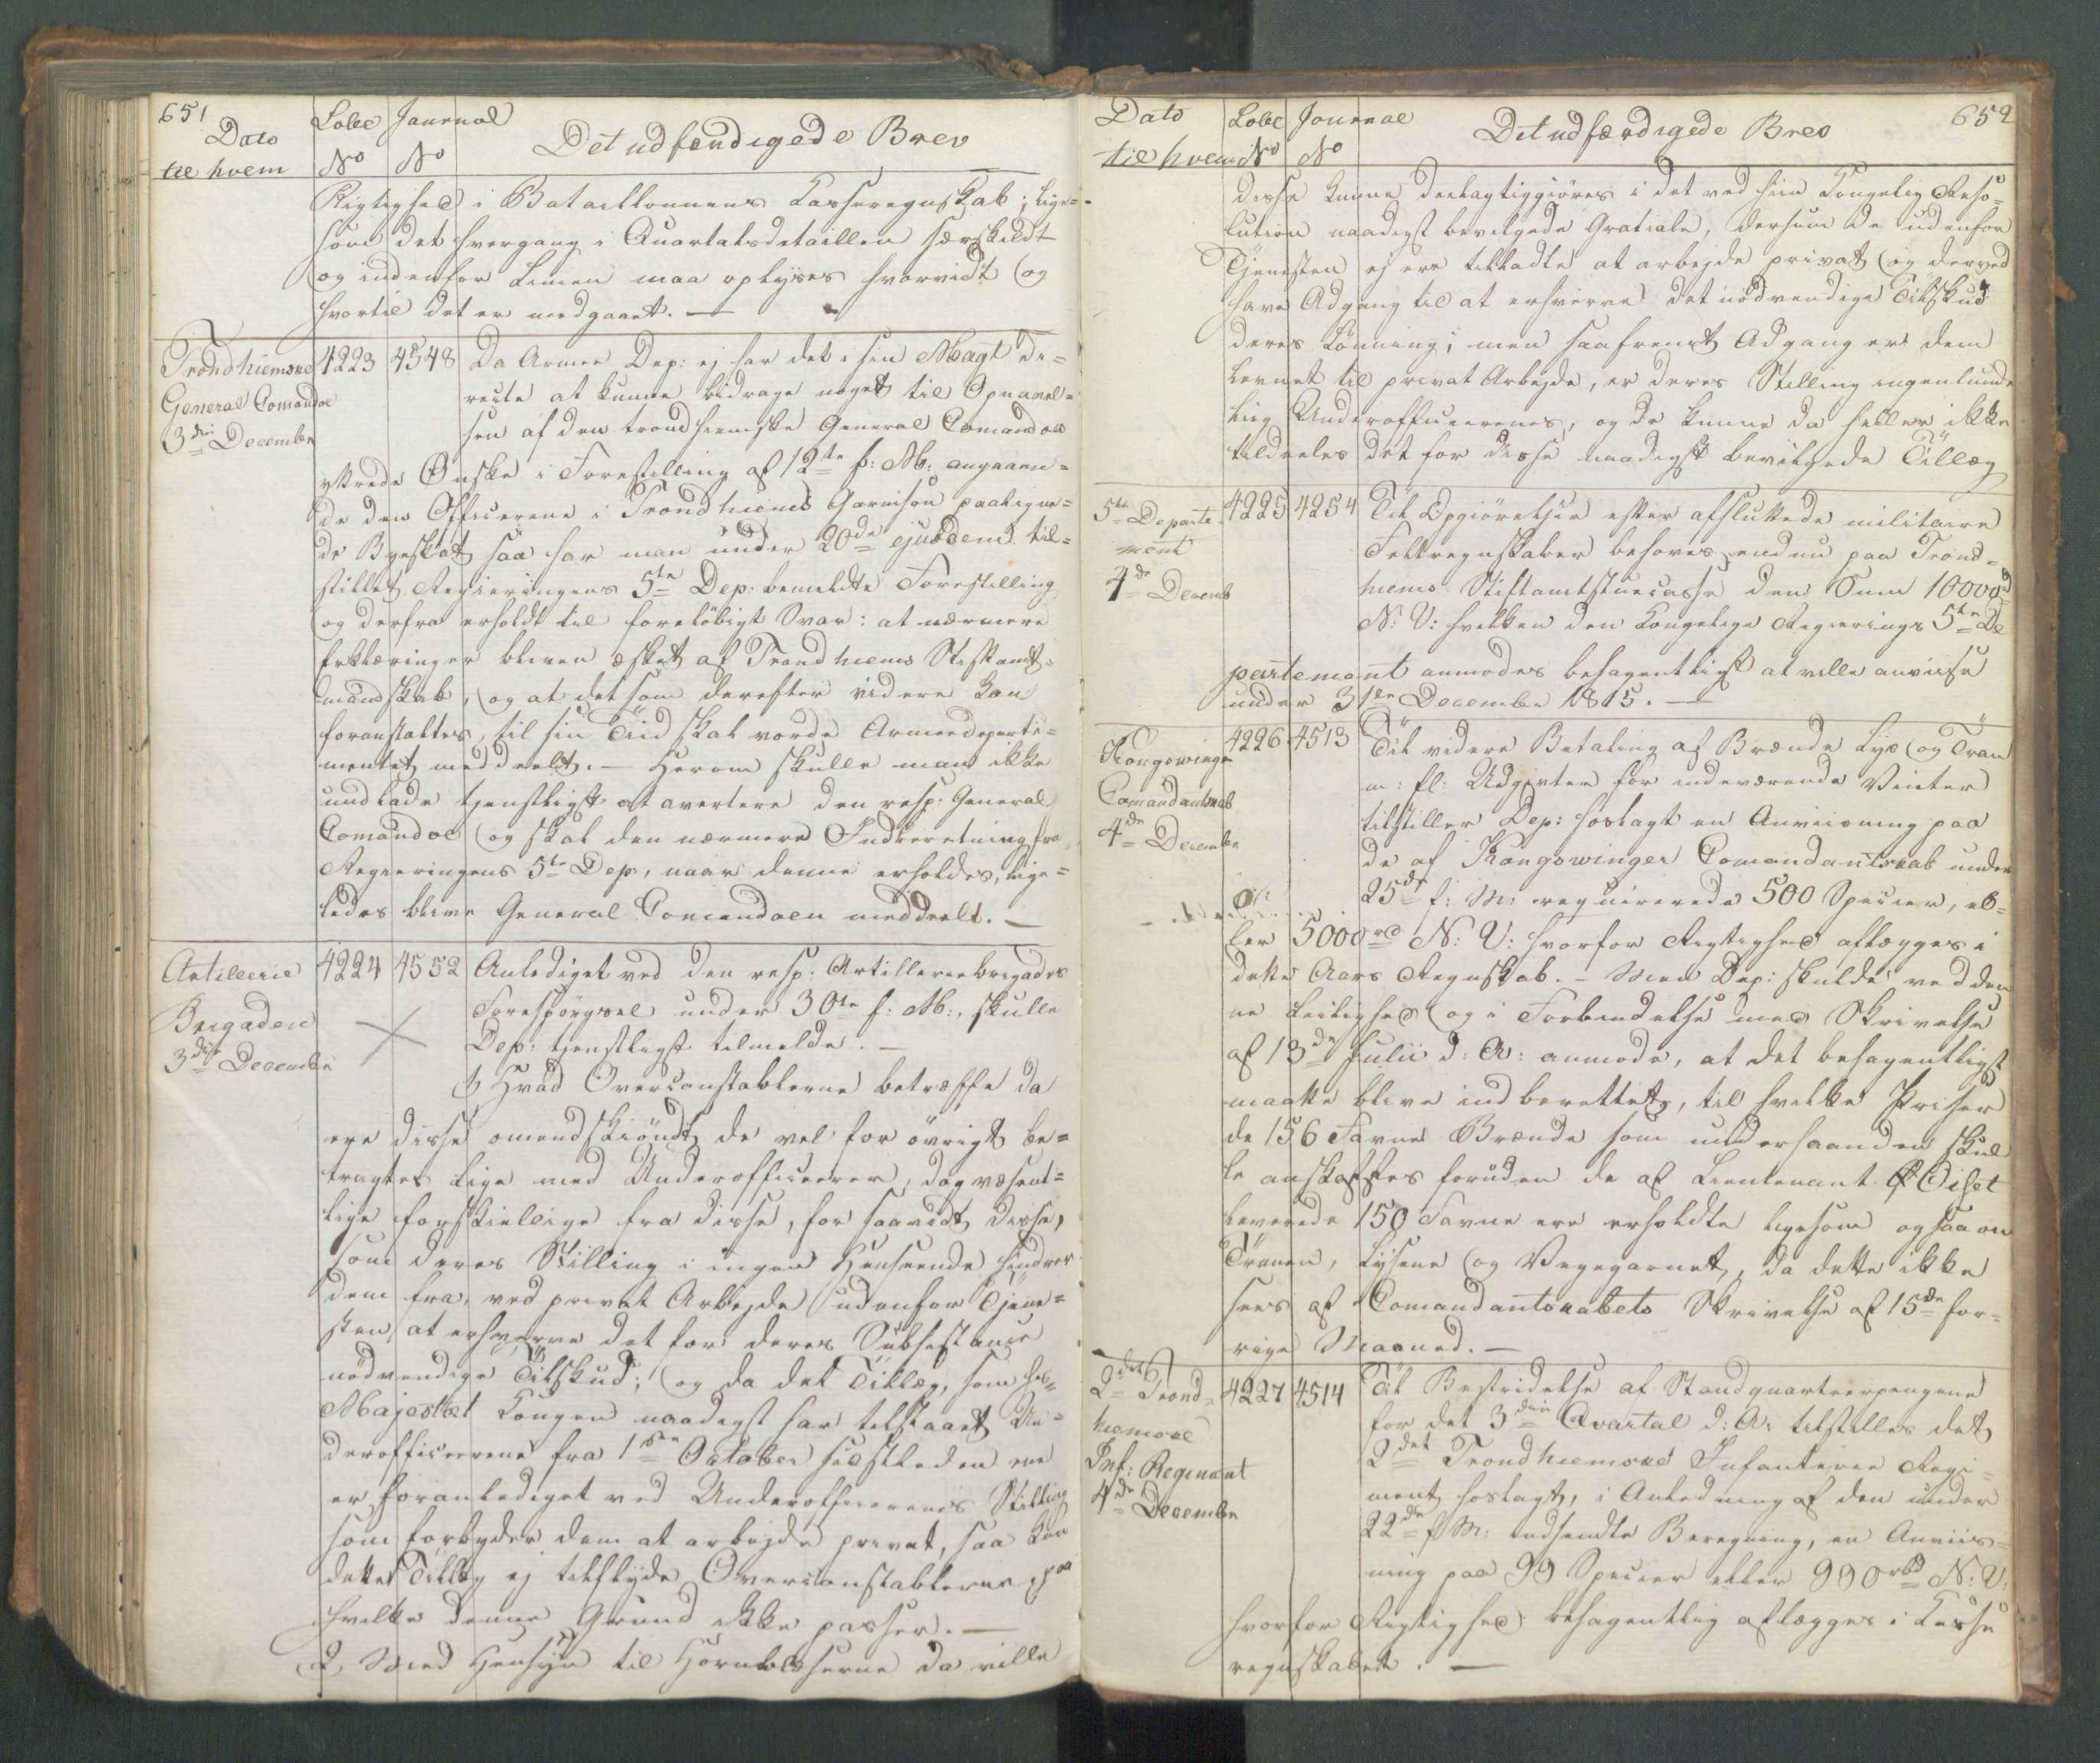 651
Dato
til hvem
Lobe
No
Journal
No
Det udfærdigede Brev
Rigtighed i Bataillonnens Casseregnskab; lige=
som det hvergang i Quartalsdetaillen særskildt
og indenfor Linien maa oplyses hvorvidt og
hvortil det er medgaaet. —
Trondhiemske
General Comandoe
3die December
4223
4548
Da Armee Dep: ej har det i sin Magt di=
recte at kunne bidrage noget til Opnaael=
sen af den trondhiemske General Comandoes
yttrede Ønske i Forestilling af 12te f: M: angaaen=
de den Officerene i Trondhiems Garnison paaligne=
de Byeskat saa har man under 20de ejusdem til=
stillet Regieringens 5te Dep: bemeldte Forestilling
og derfra erholdt til foreløbigt Svar: at nærmere
Erklæringer bliven æsket af Trondhiems Stiftamt=
mandskab, og at det som derefter videre kan
foranstaltes, til sin Tiid skal vorde Armeedeparte=
mentet meddeelt. — Herom skulle man ikke
undlade tjenstligst at avertere den resp: General
Comandoe og skal den nærmere Underretning fra
Regieringens 5te Dep, naar denne erholdes, lige=
ledes blive General Comandoen meddeelt. —
Artillerie
Brigaden
3die December
4224
4552
Anlediget ved den resp: Artilleriebrigades
Forespørgsel under 30te f: M:, skulle
Dep: tjenstligst tilmelde. —
1 Hvad Overconstablerne betræffe da
ere disse omendskiøndt de vel for øvrigt be=
tragtes lige med Underofficerer, dog væsent=
lige forskiellige fra disse, for saavidt disse,
som deres Stilling i ingen Henseende hindrer
dem fra, ved privat Arbejde udenfor Tjene=
sten, at erhverve det for deres Subsistance
nødvendige Tilskud; og da det Tillæg, som hs
Majestæt Kongen naadigst har tilstaaet Un=
derofficererne fra 1ste October sidstleden ene
er foranlediget ved Underofficerernes Stilling
som forbyder dem at arbejde privat, saa kan
dette Tillæg ej tilflyde Overconstablerne, paa
hvilke denne Grund ikke passer. —
2 Med Hensyn til Hornblæserne da ville
652
Dato
til hvem
Lobe
No
Journal
No
Det udfærdigede Brev
disse kunne deelagtiggiøres i det ved hiin Kongelig Reso=
lution naadigst bevilgede Gratiale, dersom de udenfor
Tjenesten ej ere tilladte at arbejde privat og derved
have Adgang til at erhverve det nødvendige Tilskud
deres Lønning; men saafremt Adgang er dem
levnet til privat Arbejde, er deres Stilling ingenlunde
liig Underofficerernes, og de kunne da heller ikke
tildeeles det for disse naadigst bevilgede Tillæg
5te Departe
ment
4de Decemb
4225
4254
Til Opgiørelser efter afsluttede militaire
Feltregnskaber behøves endnu paa Trond=
hiems Stiftamtstuecasse den Sum 10000rd
N: V: hvilken den Kongelige Regierings 5te De
partement anmodes behagentligst at ville anviise
under 31te December 1815. —
Kongswinger
Comandantskab
4de December
4226
4513
Til videre Betaling af Brænde Lys og Tran
m: fl: Udgivter for indeværende Vinter
tilstiller Dep: hoslagt en Anviisning paa
de af Kongswinger Comandantskab under
25de f: M: reqvirerede 500 Specier, el=
ler 5000rd N: V: hvorfor Rigtighed aflægges i
dette Aars Regnskab. — Men Dep: skulde ved den
ne Leilighed og i Forbindelse med Skrivelse
af 13de Julii d: A: anmode, at det behagentligst
maatte blive indberettet, til hvilke Priser
de 156 Favne Brænde som underhaanden skul
le anskaffes foruden de af Lieutenant Eilset
leverede 150 Favne ere erholdte ligesom ogsaa om
Tranen, Lysene og Vegegarnet, da dette ikke
sees af Comandantskabets Skrivelse af 15de for=
rige Maaned. —
2det Trond=
hiemske
Inf: Regiment
4de December
4227
4514
Til Bestridelse af Standquarteerpengene
for det 3die Qvartal d: A: tilstilles det
2det Trondhiemske Infanterie Regi=
ment hoslagt, i Anledning af den under
22de f: M: indsendte Beregning, en Anviis=
ning paa 99 Specier eller 990rbd N: V:
hvorfor Rigtighed behagentlig aflægges i Casse
regnskabet. —